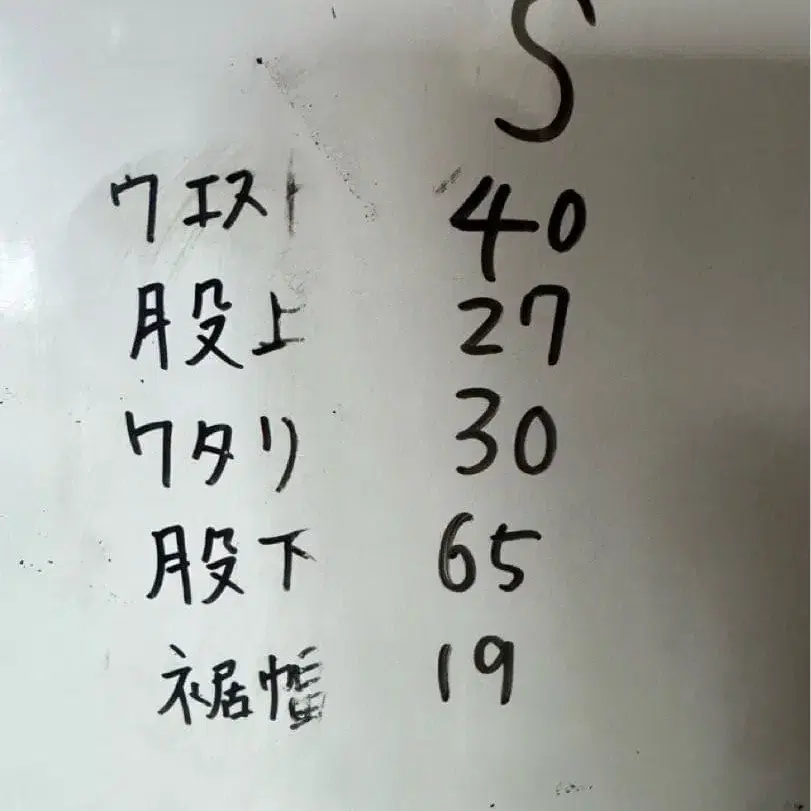 S
ウエスト 40
股上 27
ワタリ 30
股下 65
裾幅 19